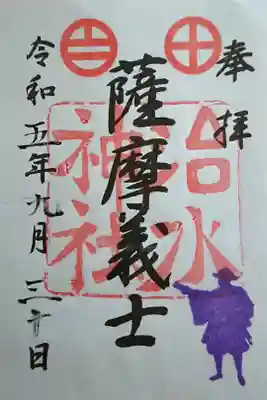 奉拝
治水
神社
薩摩義士
令和五年九月三十日